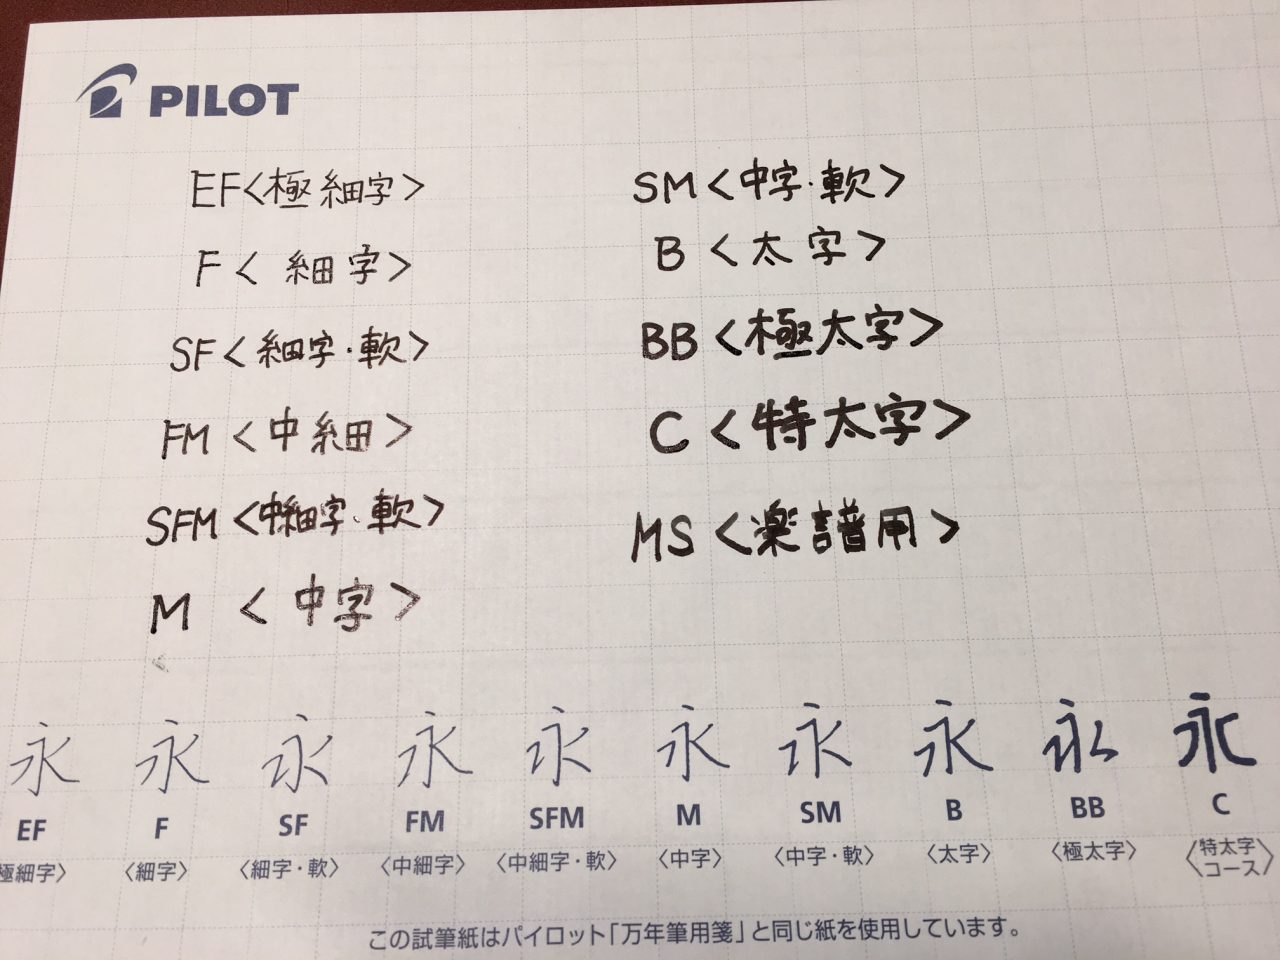 PILOT
EF<極細字>
F<細字>
SF<細字・軟>
FM<中細>
SFM<中細字・軟>
M<中字>
SM<中字・軟>
B<太字>
BB<極太字>
C<特太字>
MS<楽譜用>
永 永 永 永 永 永 永 永 永 永
EF F SF FM SFM M SM B BB C
極細字〉 〈細字〉 〈細字・軟〉 〈中細字〉 〈中細字・軟〉 〈中字〉 〈中字・軟〉 〈太字〉 〈極太字〉 〈特太字
コース〉
この試筆紙はパイロット「万年筆用箋」と同じ紙を使用しています。